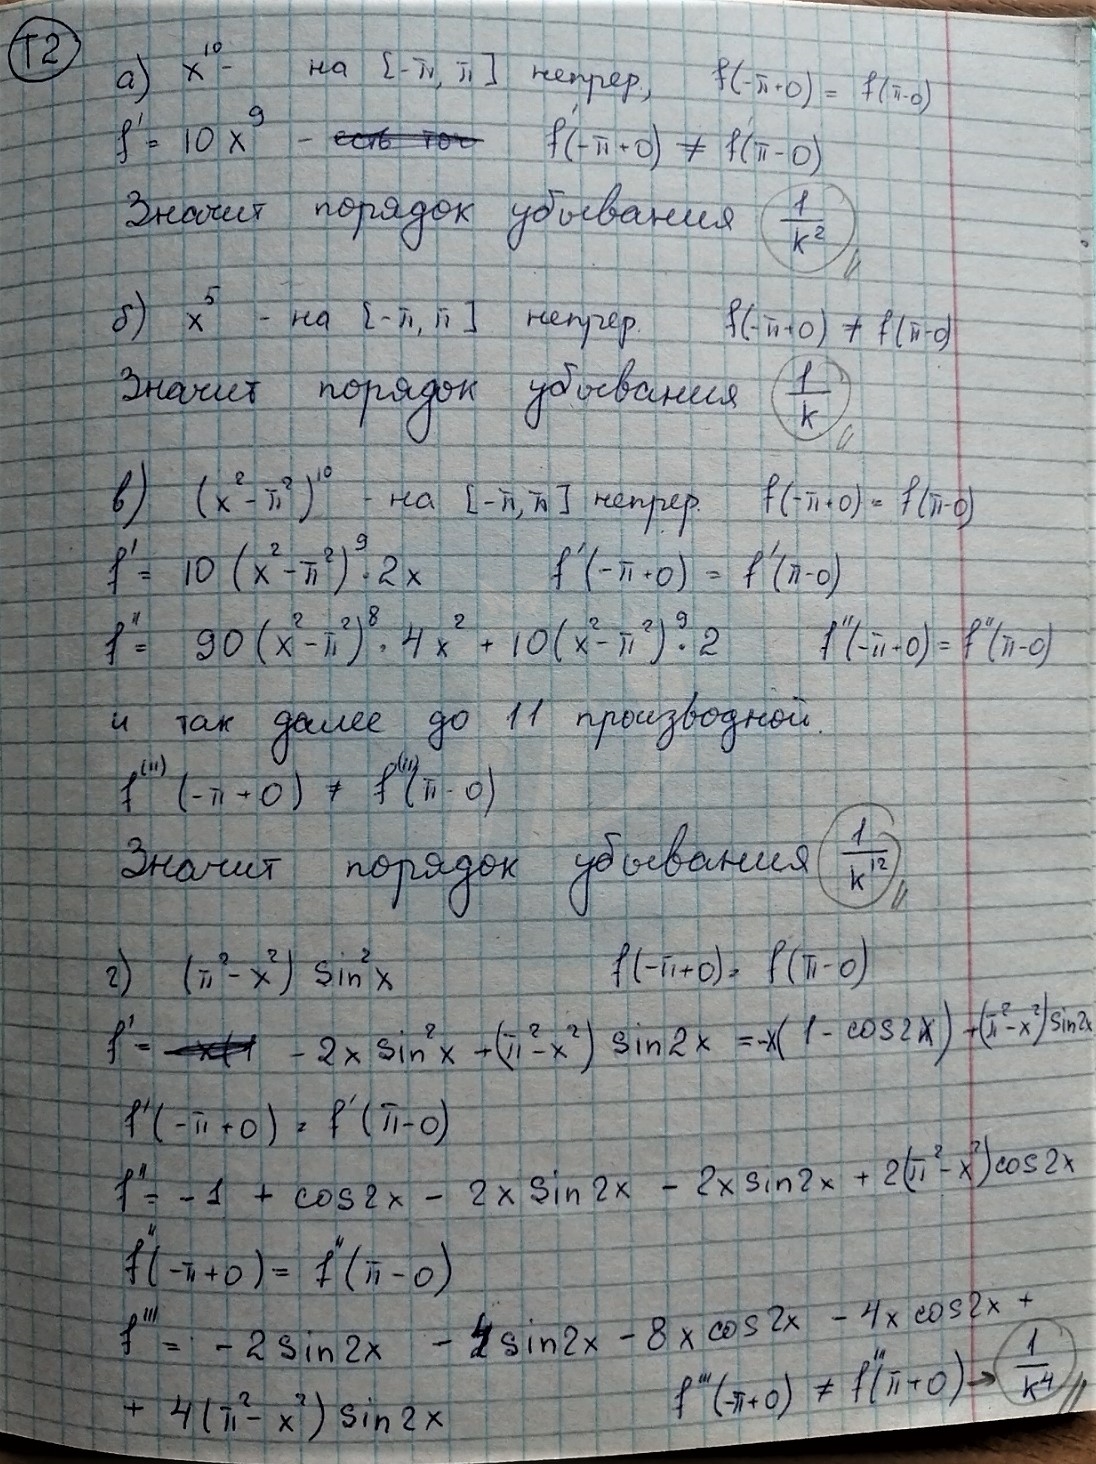 Т2
а) x¹⁰ - на [-π, π] непрер., f(-π+0) = f(π-0)
f' = 10x⁹ - f'(-π+0) ≠ f'(π-0)
Значит порядок убывания 1/k²
б) x⁵ - на [-π, π] непрер. f(-π+0) ≠ f(π-0)
Значит порядок убывания 1/k
в) (x² - π²)¹⁰ - на [-π, π] непрер. f(-π+0) = f(π-0)
f' = 10(x² - π²)⁹ · 2x f'(-π+0) = f'(π-0)
f'' = 90(x² - π²)⁸ · 4x² + 10(x² - π²)⁹ · 2 f''(-π+0) = f''(π-0)
и так далее до 11 производной.
f⁽¹¹⁾(-π+0) ≠ f⁽¹¹⁾(π-0)
Значит порядок убывания 1/k¹²
г) (π² - x²) sin²x f(-π+0) = f(π-0)
f' = -2x sin²x + (π² - x²) sin2x = -x(1 - cos2x) + (π² - x²) sin2x
f'(-π+0) = f'(π-0)
f'' = -1 + cos2x - 2x sin2x - 2x sin2x + 2(π² - x²) cos2x
f''(-π+0) = f''(π-0)
f''' = -2 sin2x - sin2x - 8x cos2x - 4x cos2x +
+ 4(π² - x²) sin2x f'''(-π+0) ≠ f'''(π+0) → 1/k⁴